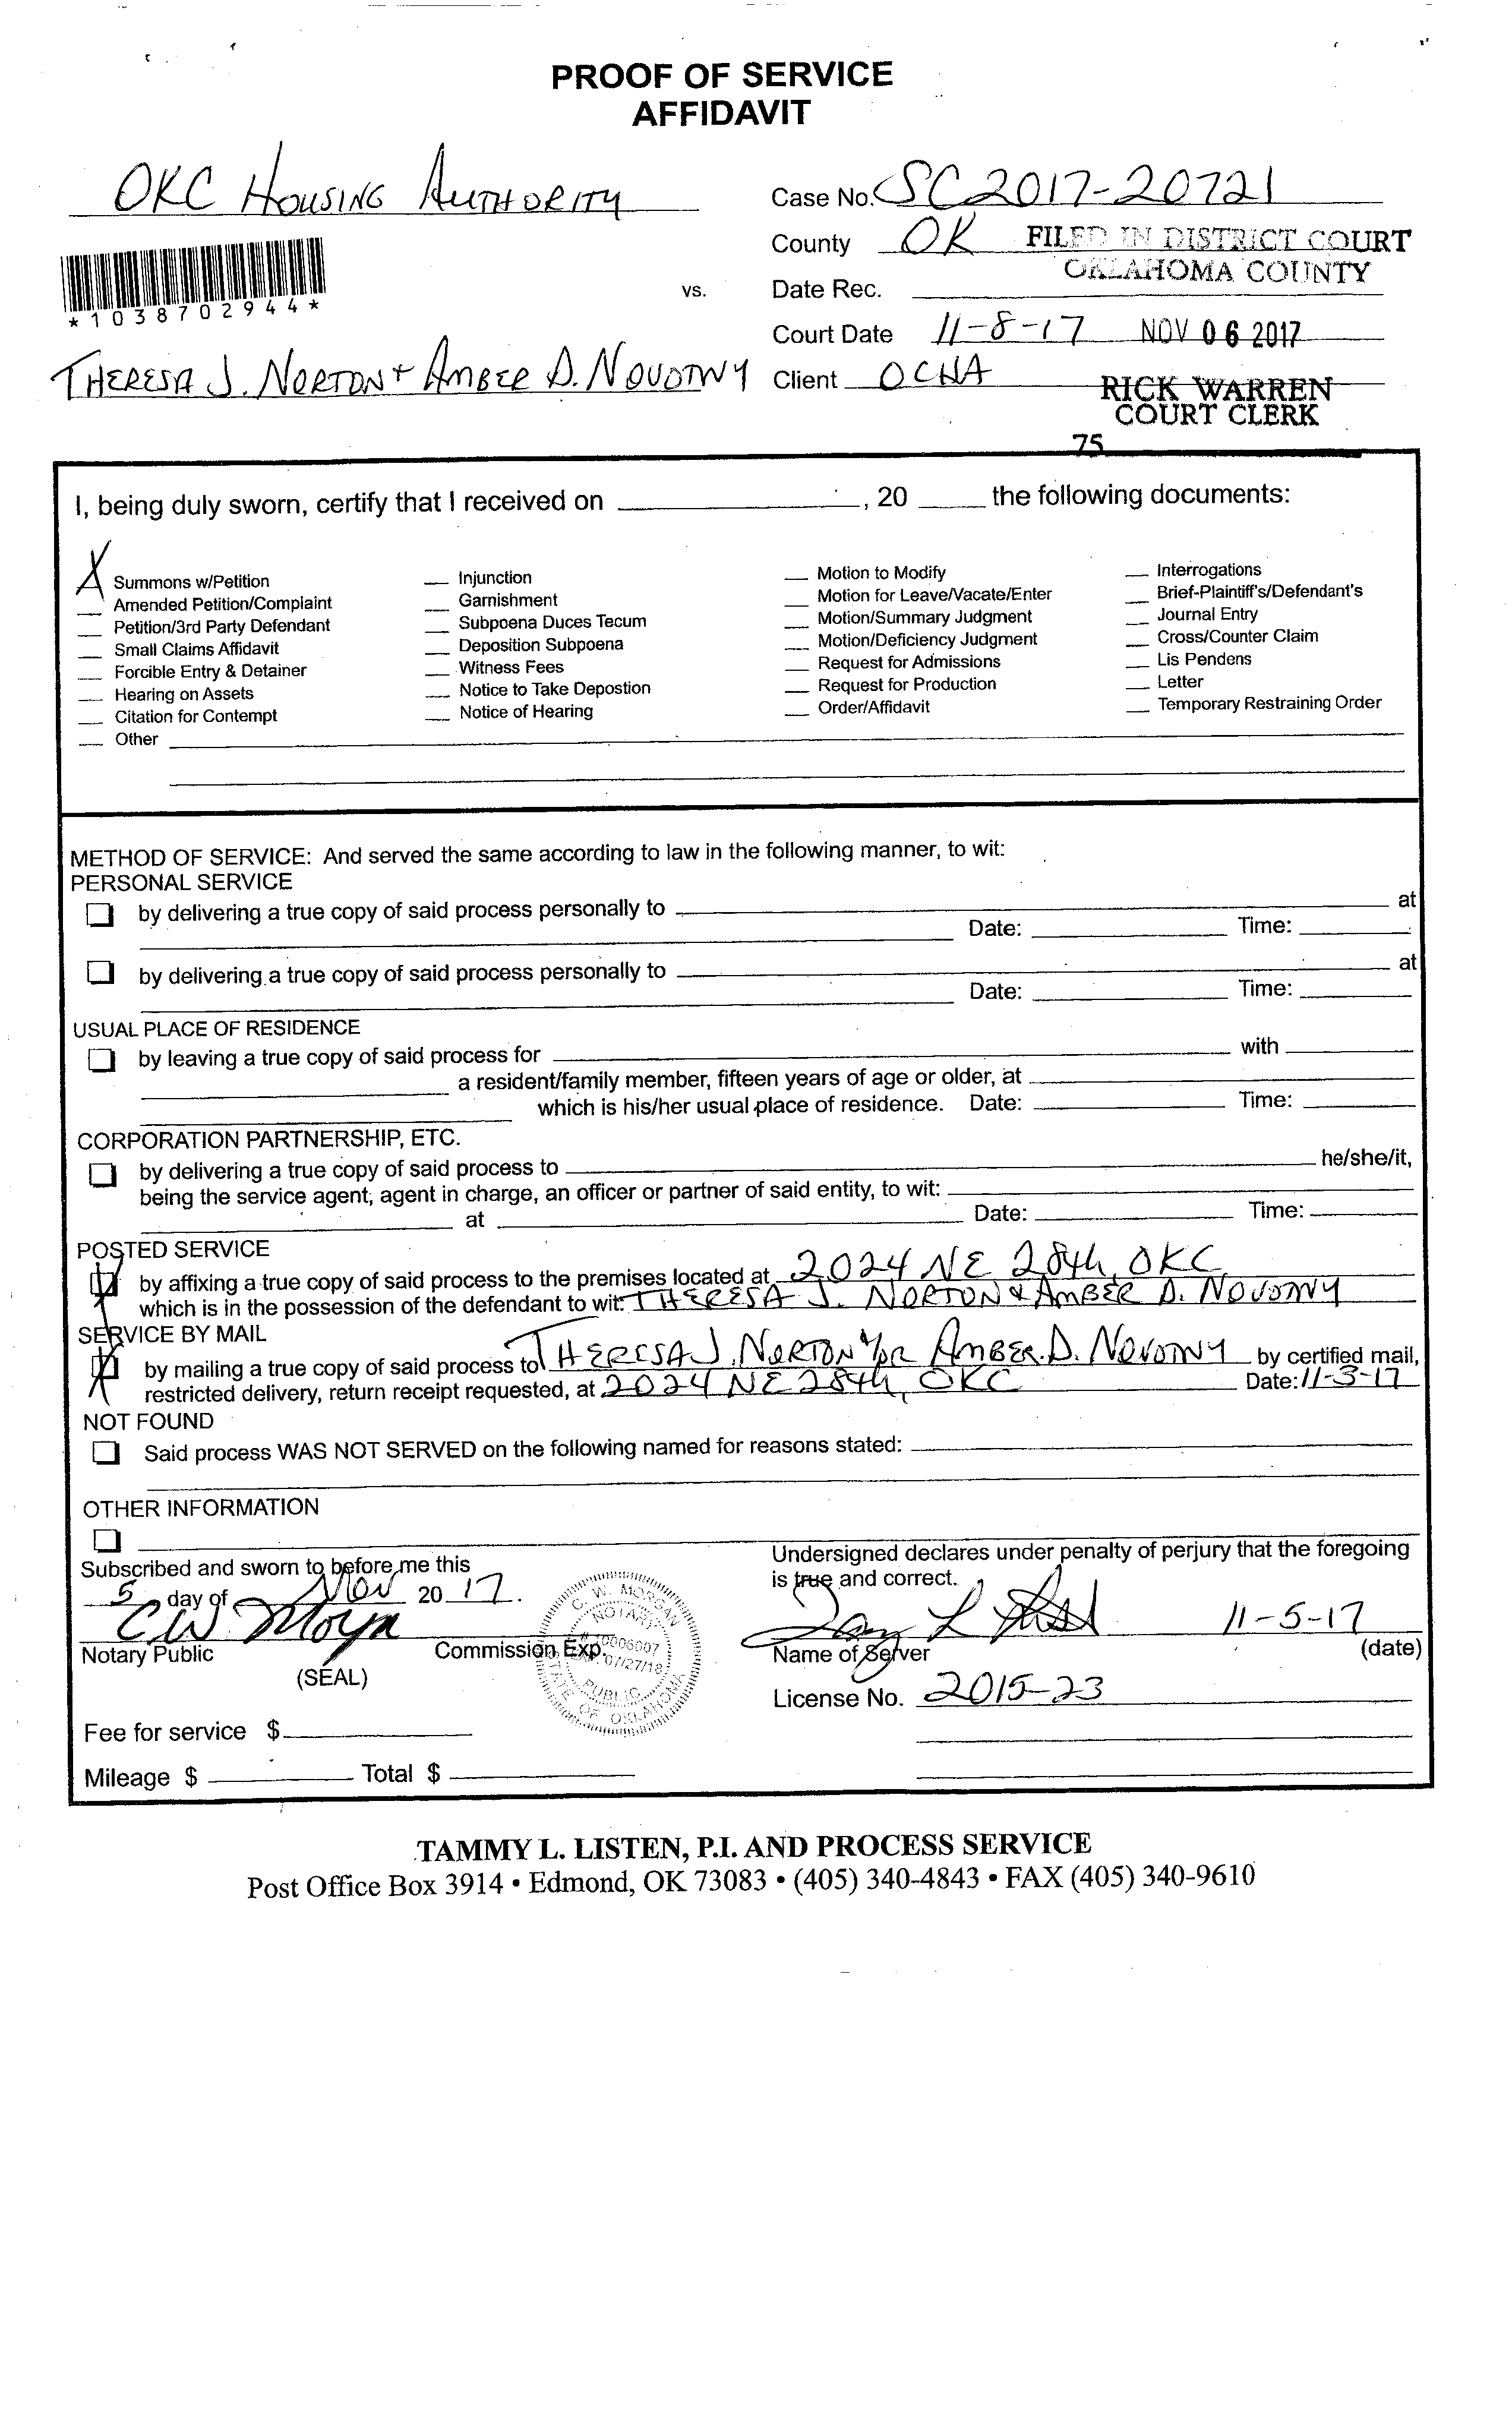 PROOF OF SERVICE
AFFIDAVIT
OKC HOUSING AUTHORITY
Case No. SC2017-20721
County OK FILED IN DISTRICT COURT
OKLAHOMA COUNTY
*1038702944*
vs.
Date Rec.
Court Date 11-8-17 NOV 06 2017
THERESA J. NORTON + AMBER D. NOVOTNY
Client OCHA
RICK WARREN
COURT CLERK
75
I, being duly sworn, certify that I received on ____, 20 ____ the following documents:
X Summons w/Petition
__ Amended Petition/Complaint
__ Petition/3rd Party Defendant
__ Small Claims Affidavit
__ Forcible Entry & Detainer
__ Hearing on Assets
__ Citation for Contempt
__ Other
__ Injunction
__ Garnishment
__ Subpoena Duces Tecum
__ Deposition Subpoena
__ Witness Fees
__ Notice to Take Depostion
__ Notice of Hearing
__ Motion to Modify
__ Motion for Leave/Vacate/Enter
__ Motion/Summary Judgment
__ Motion/Deficiency Judgment
__ Request for Admissions
__ Request for Production
__ Order/Affidavit
__ Interrogations
__ Brief-Plaintiff's/Defendant's
__ Journal Entry
__ Cross/Counter Claim
__ Lis Pendens
__ Letter
__ Temporary Restraining Order
METHOD OF SERVICE: And served the same according to law in the following manner, to wit:
PERSONAL SERVICE
by delivering a true copy of said process personally to ____ at
____ Date: ____ Time: ____
by delivering a true copy of said process personally to ____ at
____ Date: ____ Time: ____
USUAL PLACE OF RESIDENCE
by leaving a true copy of said process for ____ with ____
____ a resident/family member, fifteen years of age or older, at ____
____ which is his/her usual place of residence. Date: ____ Time: ____
CORPORATION PARTNERSHIP, ETC.
by delivering a true copy of said process to ____ he/she/it,
being the service agent, agent in charge, an officer or partner of said entity, to wit: ____
____ at ____ Date: ____ Time: ____
POSTED SERVICE
X by affixing a true copy of said process to the premises located at 2024 NE 28th, OKC
which is in the possession of the defendant to wit: THERESA J. NORTON & AMBER D. NOVOTNY
SERVICE BY MAIL
X by mailing a true copy of said process to THERESA J. NORTON &/OR AMBER D. NOVOTNY by certified mail,
restricted delivery, return receipt requested, at 2024 NE 28th, OKC Date: 11-3-17
NOT FOUND
Said process WAS NOT SERVED on the following named for reasons stated: ____
OTHER INFORMATION
Subscribed and sworn to before me this
5 day of Nov 20 17.
CW Morgan
Notary Public
(SEAL)
Commission Exp.
C. W. MORGAN
NOTARY
# 10006007
EXP. 07/27/18
PUBLIC
STATE OF OKLAHOMA
Undersigned declares under penalty of perjury that the foregoing
is true and correct.
11-5-17
Name of Server (date)
License No. 2015-23
Fee for service $____
Mileage $ ____ Total $ ____
TAMMY L. LISTEN, P.I. AND PROCESS SERVICE
Post Office Box 3914 • Edmond, OK 73083 • (405) 340-4843 • FAX (405) 340-9610